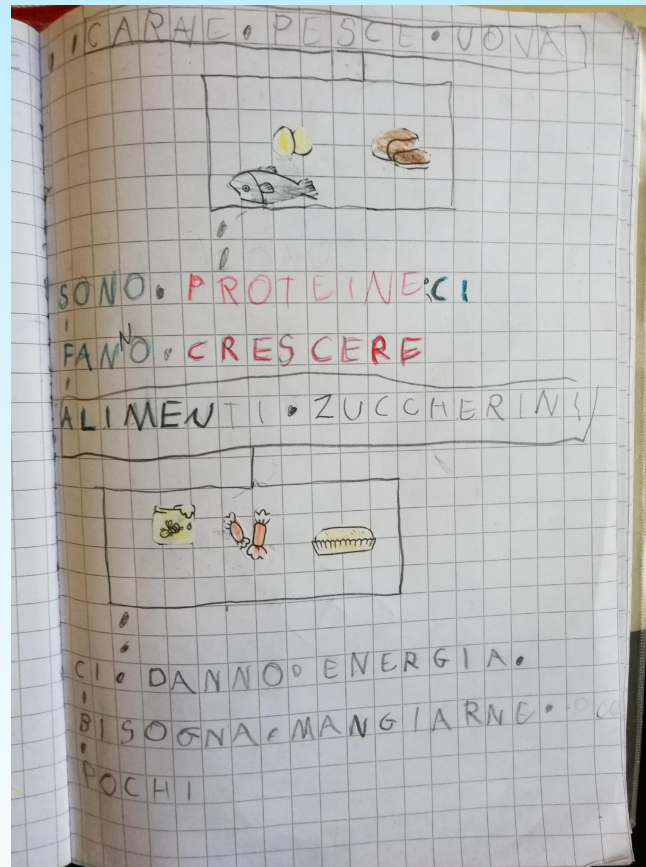 CARNE • PESCE • UOVA
SONO • PROTEINE • CI
FANNO • CRESCERE
ALIMENTI • ZUCCHERINI
CI • DANNO • ENERGIA •
BISOGNA • MANGIARNE •
POCHI